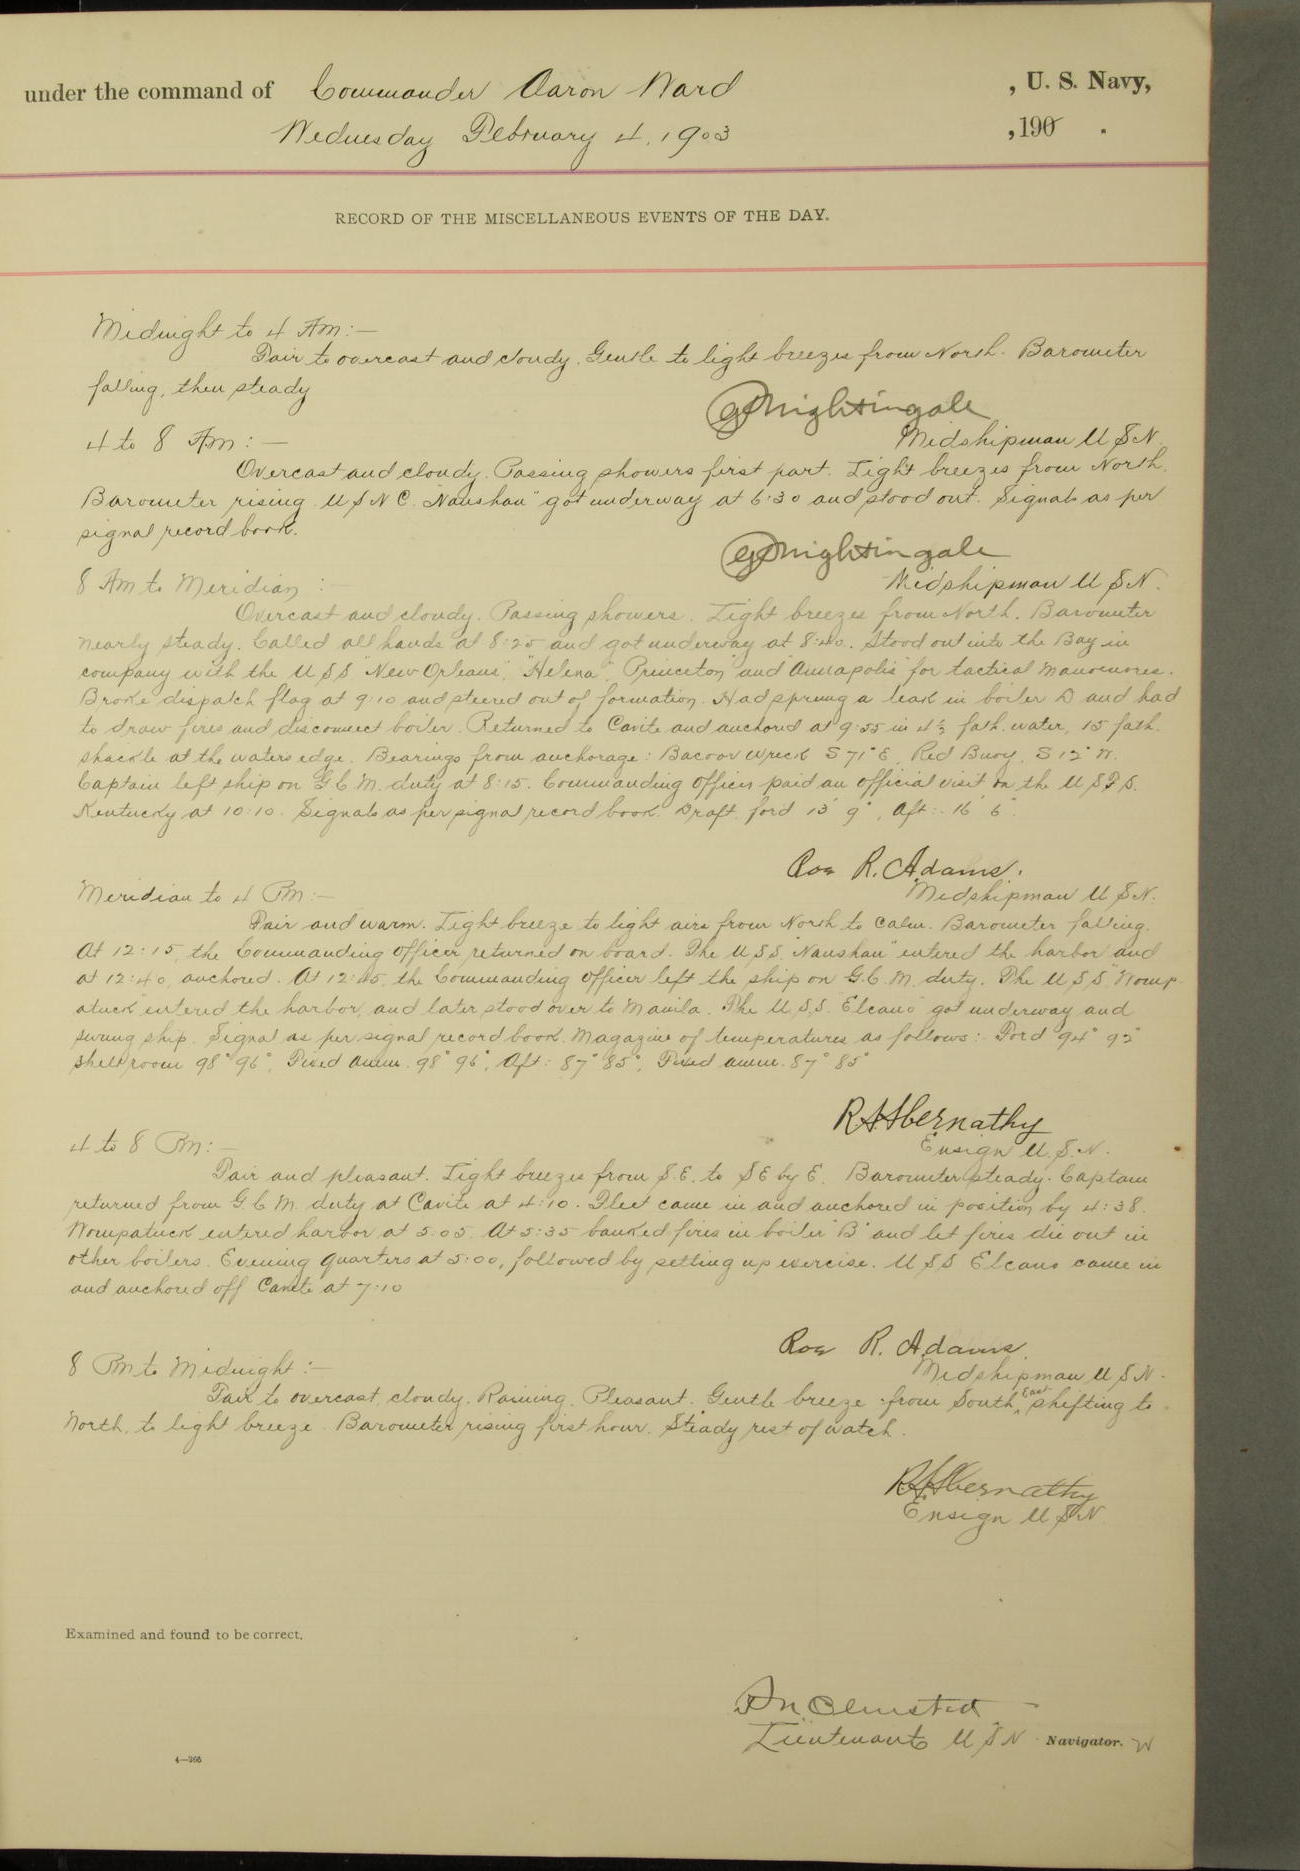 under the command of Commander Aaron Ward , U. S. Navy,
Wednesday February 4, 1903 , 190 .
RECORD OF THE MISCELLANEOUS EVENTS OF THE DAY.
Midnight to 4 Am:—
Fair to overcast and cloudy. Gentle to light breezes from North. Barometer
falling, then steady
Nightingale
Midshipman U S N.
4 to 8 Am:—
Overcast and cloudy. Passing showers first part. Light breezes from North.
Barometer rising. U S N C. "Nanshan" got underway at 6:30 and stood out. Signals as per
signal record book.
Nightingale
Midshipman U S N.
8 Am to Meridian :—
Overcast and cloudy. Passing showers. Light breezes from North. Barometer
nearly steady. Called all hands at 8:25 and got underway at 8:40. Stood out into the Bay in
company with the U S S "New Orleans", "Helena", "Princeton" and "Annapolis" for tactical manouvres.
Broke dispatch flag at 9:10 and steered out of formation. Had sprung a leak in boiler D and had
to draw fires and disconnect boiler. Returned to Cavite and anchored at 9:55 in 4½ fath. water, 15 fath.
shackle at the waters edge. Bearings from anchorage: Bacoor Wreck S 71° E. Red Buoy, S 12° W.
Captain left ship on G C M. duty at 8:15. Commanding Officer paid an official visit on the U S F S.
Kentucky at 10:10. Signals as per signal record book. Draft, ford 13' 9", Aft:- 16' 6".
Roe R. Adams.
Midshipman U S N.
Meridian to 4 PM:—
Fair and warm. Light breeze to light airs from North to calm. Barometer falling.
At 12:15, the Commanding Officer returned on board. The U.S.S. "Nanshan" entered the harbor and
at 12:40, anchored. At 12:45, the Commanding Officer left the ship on G.C.M. duty. The U S S "Womp-
atuck" entered the harbor, and later stood over to Manila. The U.S.S. "Elcano" got underway and
swung ship. Signal as per signal record book. Magazine of temperatures as follows:- Ford 94° 92°
Shell room 98° 96°, Fixed amm. 98° 96°, Aft: 87° 85°, Fixed amm. 87° 85°
R S Abernathy
Ensign U.S.N.
4 to 8 Pm:—
Fair and pleasant. Light breezes from S.E. to S E by E. Barometer steady. Captain
returned from G C M. duty at Cavite at 4:10. Fleet came in and anchored in position by 4:38.
Wompatuck entered harbor at 5:05. At 5:35 banked fires in boiler "B" and let fires die out in
other boilers. Evening quarters at 5:00, followed by setting up exercise. U S S Elcano came in
and anchored off Cavite at 7:10
Roe R. Adams.
Midshipman U S N.
8 Pm to Midnight:—
Fair to overcast, cloudy. Raining. Pleasant. Gentle breeze from South East shifting to
North, to light breeze. Barometer rising first hour. Steady rest of watch.
R S Abernathy
Ensign U S N
Examined and found to be correct.
Olmsted
Lieutenant U S N Navigator.
4—266